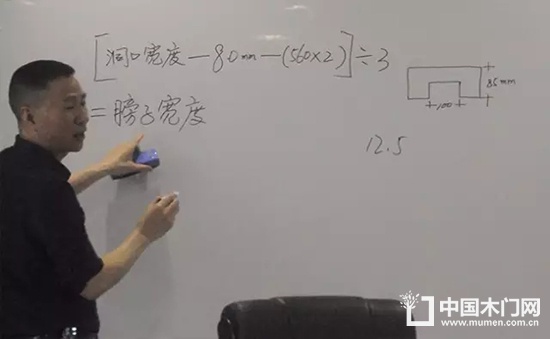 [洞口宽度-80mm-(560×2)]÷3
=膀子宽度
85mm
100
12.5
中国木门网
www.mumen.com.cn